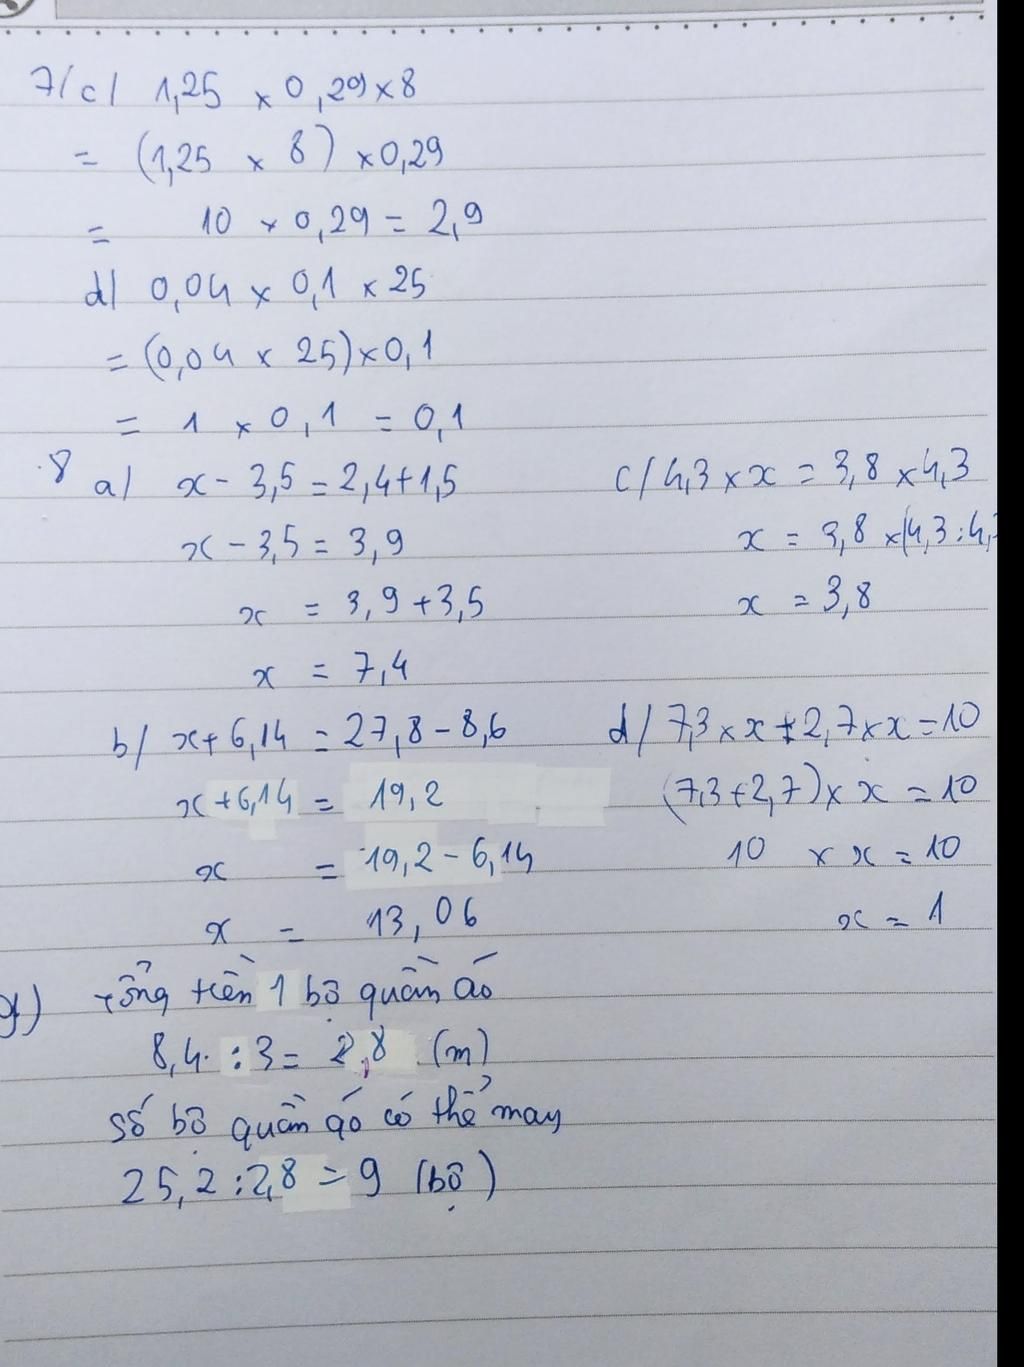 7/c/ 1,25 × 0,29×8
= (1,25 × 8) ×0,29
= 10 × 0,29 = 2,9
d/ 0,04 × 0,1 × 25
= (0,04 × 25)×0,1
= 1 × 0,1 = 0,1
8 a/ x - 3,5 = 2,4+1,5
x - 3,5 = 3,9
x = 3,9 +3,5
x = 7,4
b/ x+ 6,14 = 27,8 - 8,6
x +6,14 = 19,2
x = 19,2 - 6,14
x = 13,06
c/ 4,3 × x = 3,8 ×4,3
x = 3,8 ×(4,3 : 4,
x = 3,8
d/ 7,3 × x + 2,7 × x = 10
(7,3 +2,7)× x = 10
10 × x = 10
x = 1
9) tổng tiền 1 bộ quần áo
8,4 : 3 = 2,8 (m)
số bộ quần áo có thể may
25,2 : 2,8 = 9 (bộ)